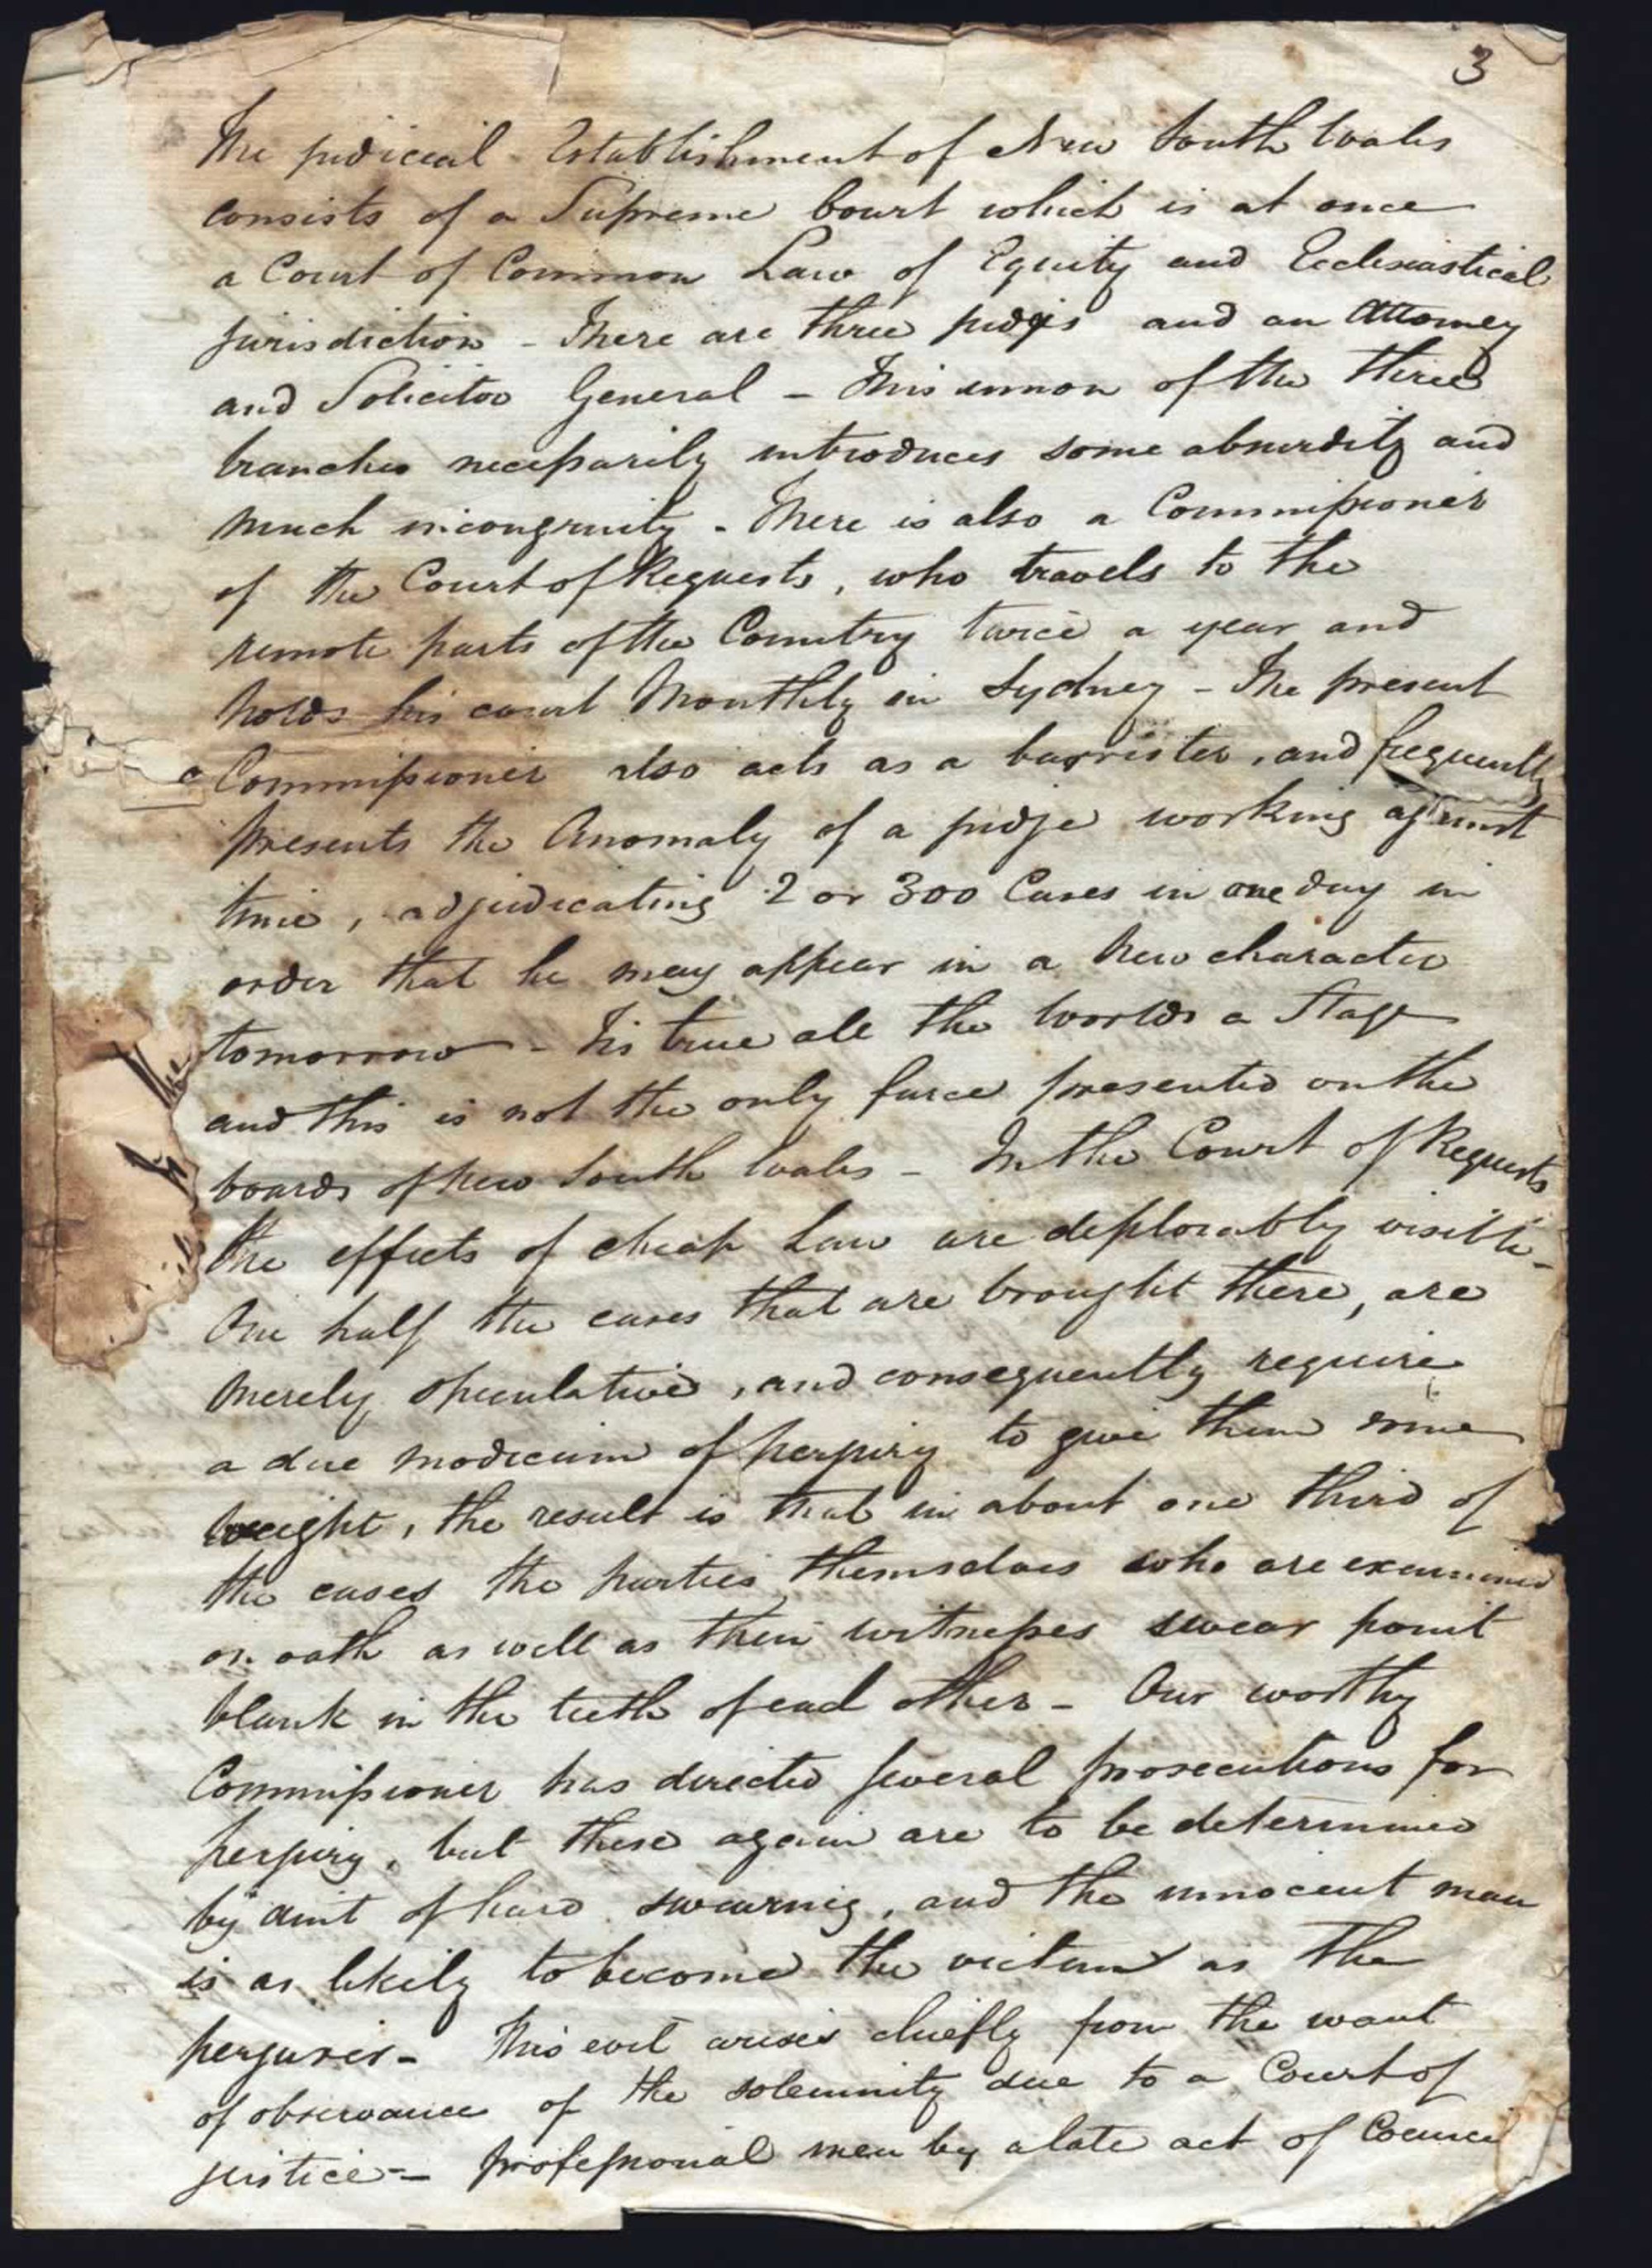 3
The judicial Establishment of New South Wales
consists of a Supreme Court which is at once
a Court of Common Law of Equity and Ecclesiastical
jurisdiction - There are three judges and an Attorney
and Solicitor General - This union of the three
branches necessarily introduces some absurdity and
much incongruity - There is also a Commissioner
of the Court of Requests, who travels to the
remote parts of the Country twice a year and
holds his court Monthly in Sydney - The present
Commissioner also acts as a barrister, and frequently
presents the Anomaly of a judge working against
time, adjudicating 2 or 300 Cases in one day in
order that he may appear in a New character
tomorrow - Tis true all the Worlds a Stage
and this is not the only farce presented on the
boards of New South Wales - In the Court of Requests
the effects of cheap Law are deplorably visible -
One half the cases that are brought there, are
merely speculative, and consequently require
a due modicum of perjury to give them some
weight, the result is that in about one third of
the cases the parties themselves who are examined
on oath as well as their witnesses swear point
blank in the teeth of each other - Our worthy
Commissioner has directed several prosecutions for
perjury, but these again are to be determined
by dint of hard swearing, and the innocent man
is as likely to become the victim as the
perjurer - This evil arises chiefly from the want
of observance of the solemnity due to a Court of
justice - professional men by a late act of Council